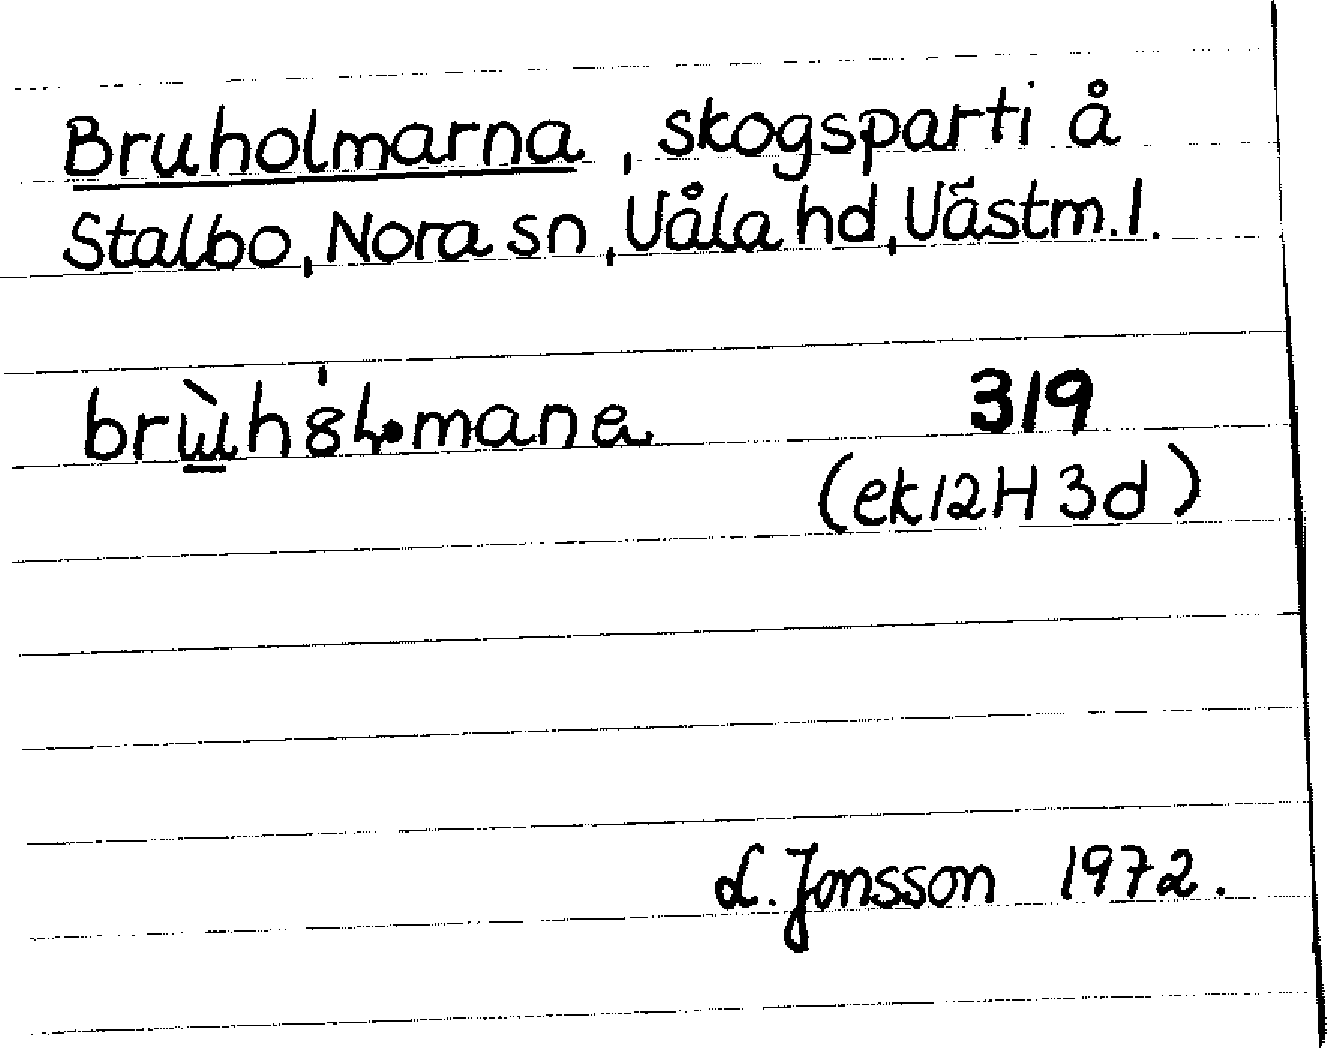 Bruholmarna, skogsparti å
Stalbo, Nora sn, Våla hd, Västm. l.
319
(ek 12H 3d)
L. Jonsson 1972.